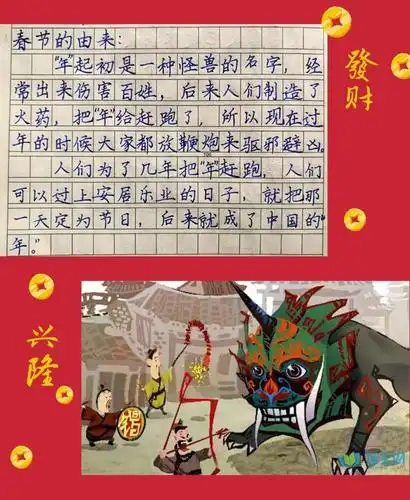 春节的由来:
"年"起初是一种怪兽的名字,经
常出来伤害百姓,后来人们制造了
火药,把"年"给赶跑了,所以现在过
年的时候大家都放鞭炮来驱邪避凶。
人们为了几年把"年"赶跑,人们
可以过上安居乐业的日子,就把那
一天定为节日,后来就成了中国的"
年。"
發财
兴隆